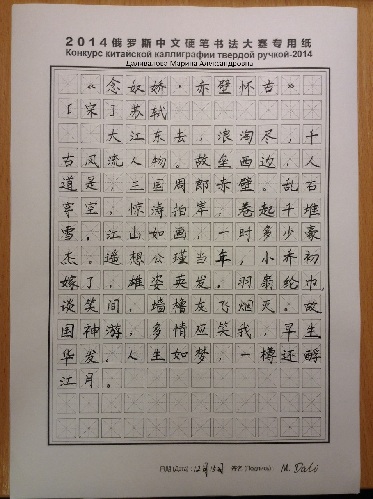 2014俄罗斯中文硬笔书法大赛专用纸
Конкурс китайской каллиграфии твердой ручкой-2014
Марина Александровна
《念奴娇·赤壁怀古》
[宋]苏轼
大江东去,浪淘尽,千
古风流人物。故垒西边,人
道是,三国周郎赤壁。乱石
穿空,惊涛拍岸,卷起千堆
雪。江山如画,一时多少豪
杰。遥想公瑾当年,小乔初
嫁了,雄姿英发。羽扇纶巾,
谈笑间,墙橹灰飞烟灭。故
国神游,多情应笑我,早生
华发,人生如梦,一樽还酹
江月。
日期(Дата): 12月15日 签名(Подпись) M. Dali